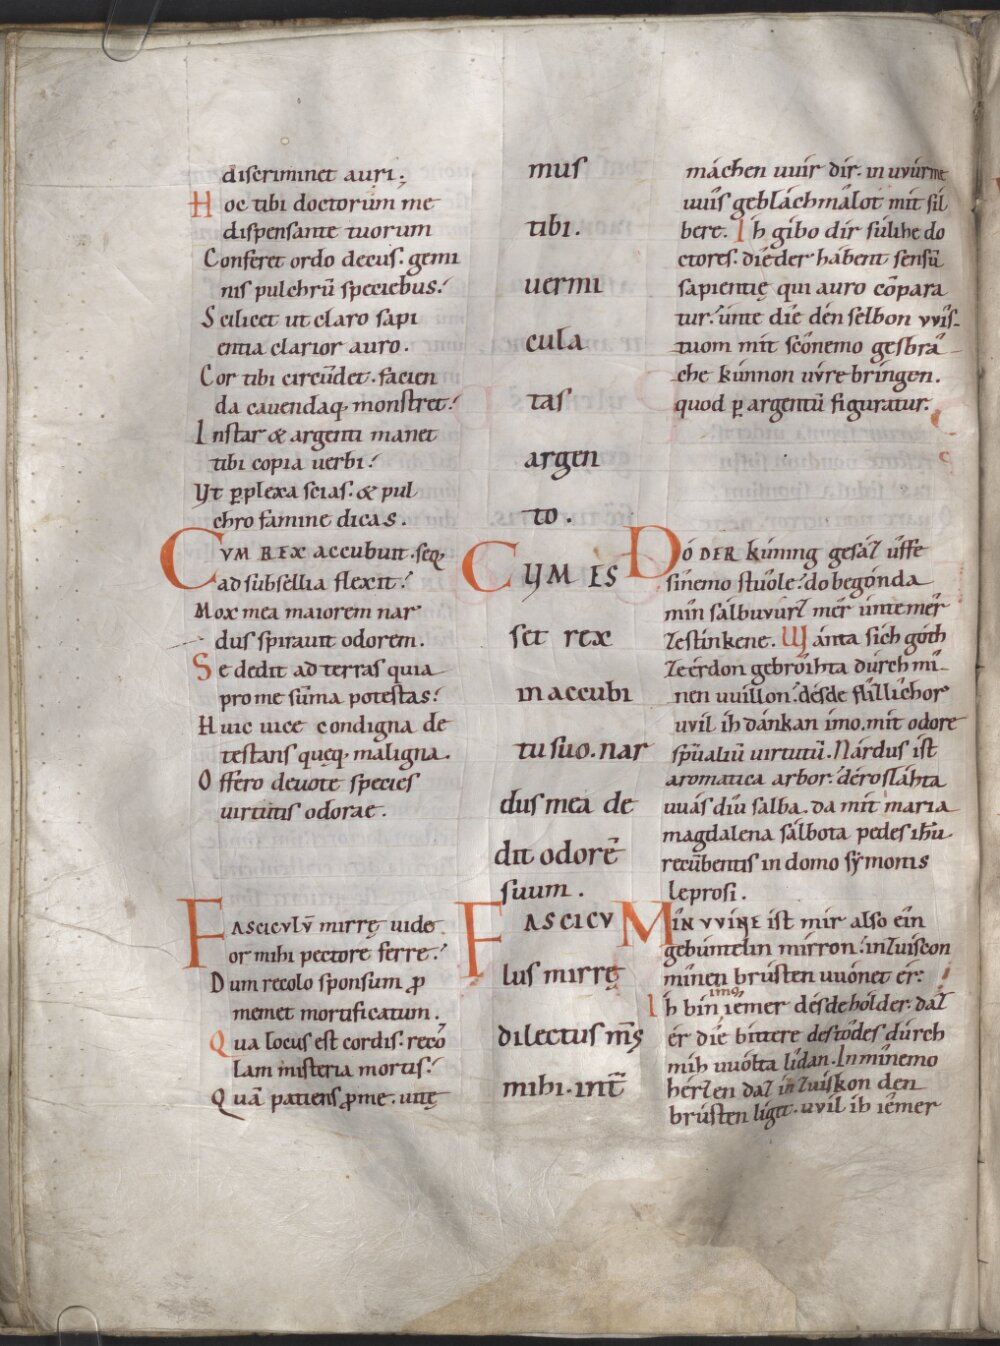 discriminet auri;
Hoc tibi doctorum me
dispensante tuorum
Conferet ordo decus: gemi
nis pulchrū speciebus:
Scilicet ut claro sapi
entia clarior auro.
Cor tibi circūdet. facien
da cavendaq; monstret:
Instar & argenti manet
tibi copia verbi:
Ut ꝑplexa scias. & pul
chro famine dicas.
CVM REX accubuit. seq;
ad subsellia flexit:
Mox mea maiorem nar
dus spiravit odorem.
Se dedit ad terras quia
pro me sūma potestas:
Huic vice condigna de
testans quęq; maligna.
Offero devote species
virtutis odorae.
FASCICULŪ mirrę vide
or mihi pectore ferre:
Dum recolo sponsum ꝓ
memet mortificatum.
Qua locus est cordis. reco
lam misteria mortis:
Quā patiens ꝓme. vitę
mus
tibi.
uermi
cula
tas
argen
to.
CUM ES
set rex
in accubi
tu suo. nar
dus mea de
dit odorē
suum.
FASCICU
lus mirrę
dilectus m̄s
mihi. int̄
máchen uuir dir. in uvúrme
uuîs geblâchmâlot mit sil
bere. Ih gibo dir súlihe do
ctores. dîe der hábent sensū
sapientię qui auro cōpara
tur. únte die dén selbon vvîs
tuom mit scônemo gesbrâ
che kúnnon vúre bringen.
quod ꝑ argentū figuratur.
DÓ DER kúning gesáz ûffe
sînemo stuôle: do begónda
mîn sálbuvurz mêr únte mêr
ze stinkene. Wánta sich góth
ze érdon gebrôihta dúrch mî
nen vuillon: dés de flîzlichor
uvil ih dánkan imo. mit odore
spūaliū virtutū. Nárdus ist
aromatica arbor. dêro slâhta
uuás diu salba. da mit maria
magdalena sálbota pedes ih̄u
recūbentis in domo sýmonis
leprosi.
MIN VVINE ist mir also ein
gebúntelin mírron: in zuiscon
mînen brústen uuónet ér:
imo
Ih bin iemer dés de hólder. daz
ér die bittere des tôdes dúrch
mih uuólta lîdan. In mînemo
hérzen daz in zuiskon den
brústen ligit. uvil ih iêmer